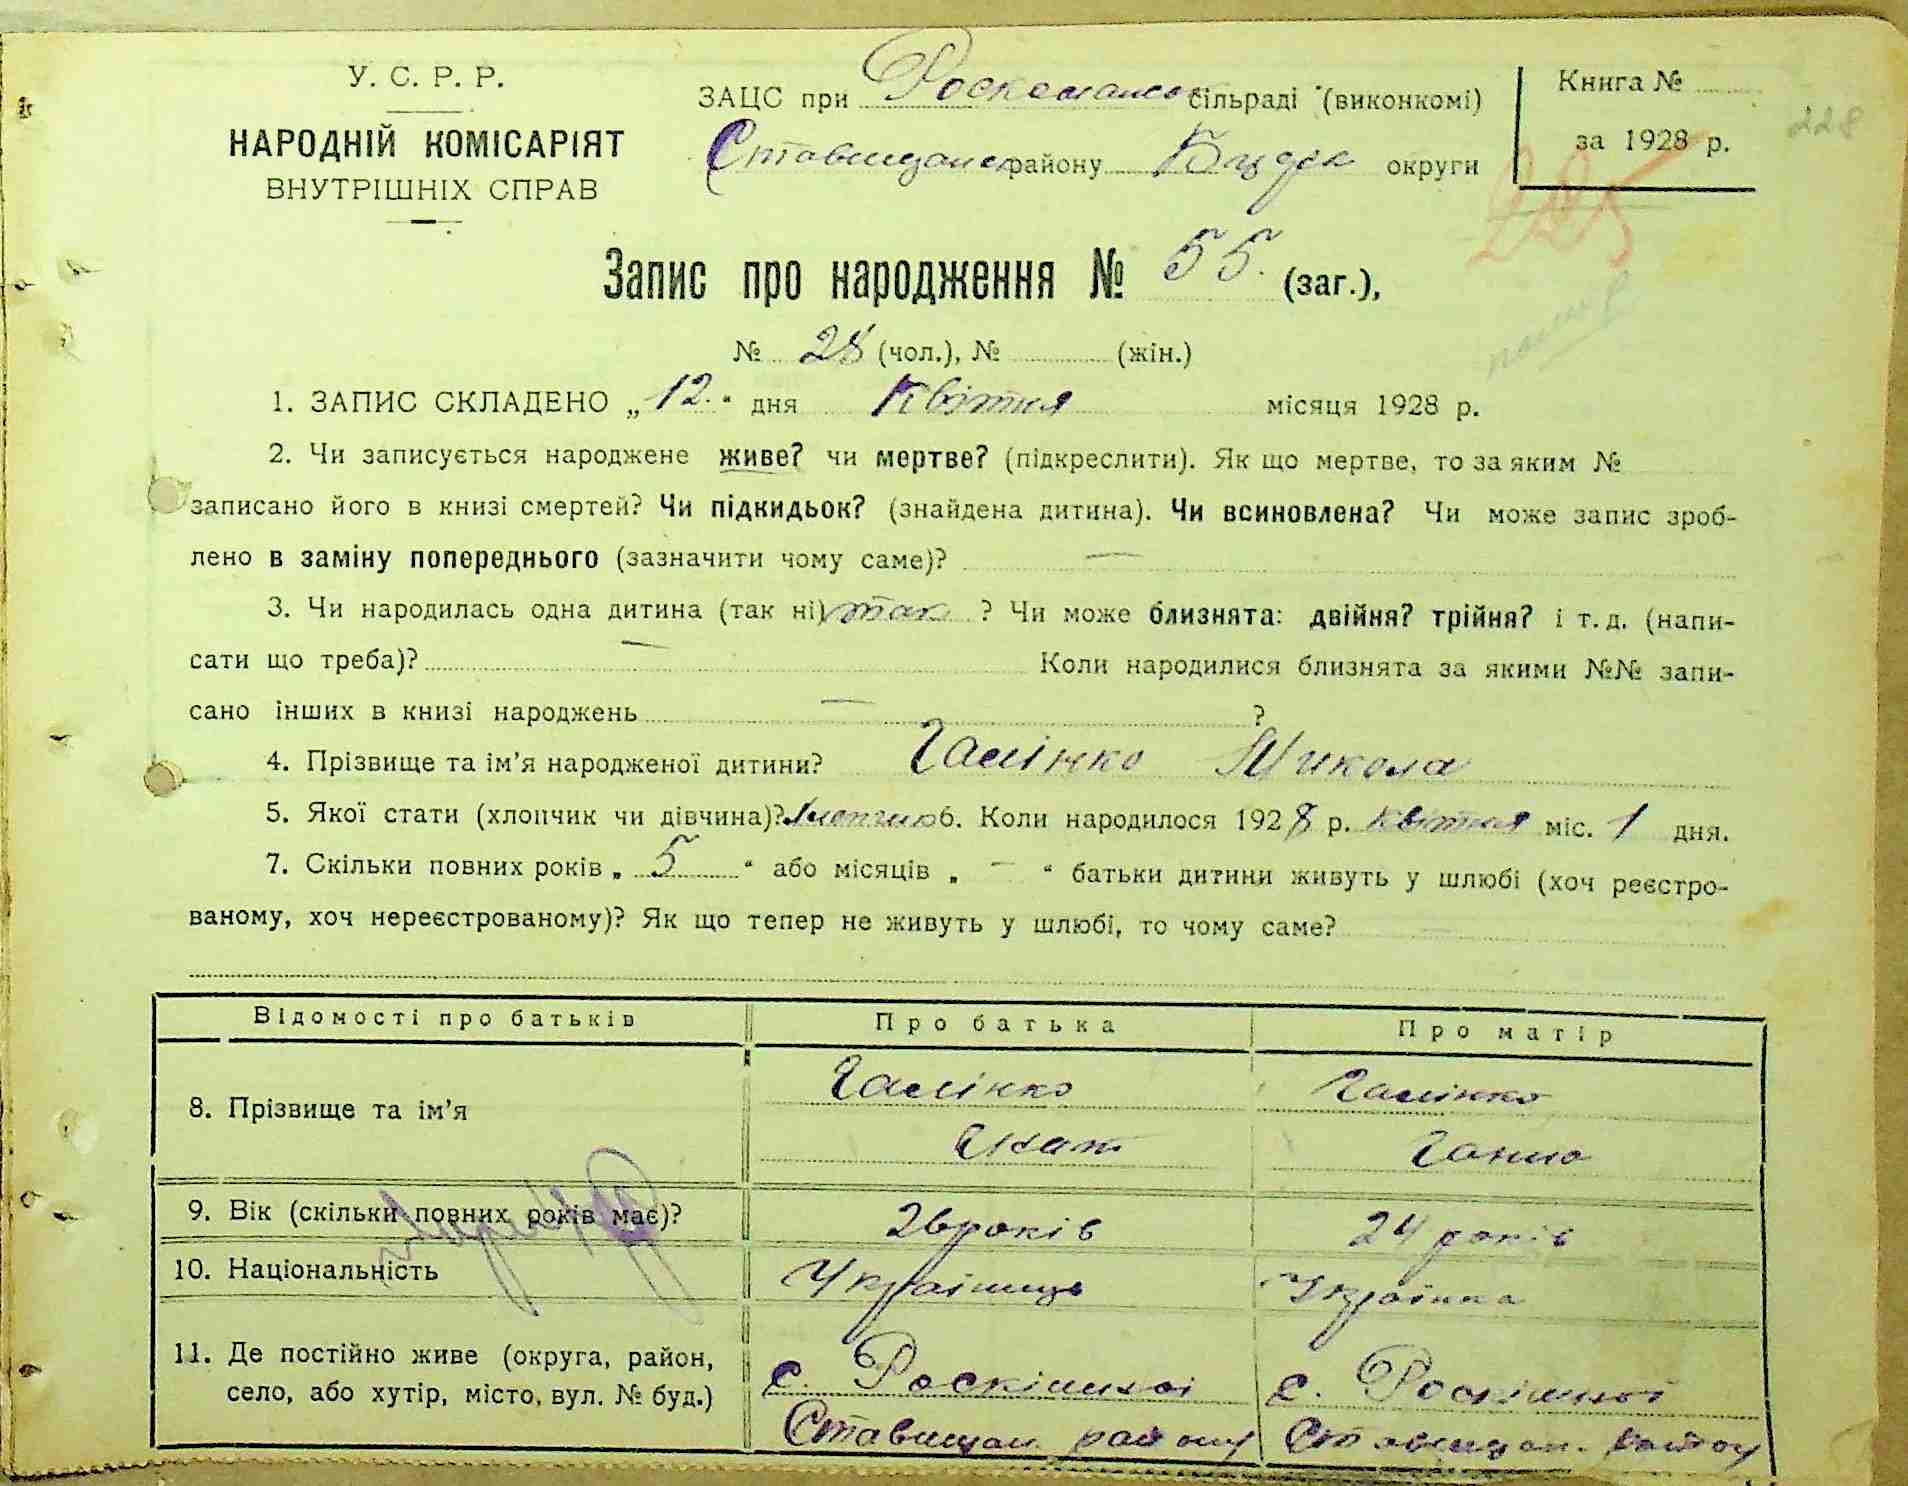 У. С. Р. Р.
НАРОДНІЙ КОМІСАРІЯТ
ВНУТРІШНІХ СПРАВ
ЗАЦС при сільраді (виконкомі)
району округи
Книга №
за 1928 р.
228
225
Запис про народження № 55. (заг.),
№ 28 (чол.), № (жін.)
1. ЗАПИС СКЛАДЕНО „12.“ дня Квітня місяця 1928 р.
2. Чи записується народжене живе? чи мертве? (підкреслити). Як що мертве, то за яким №
записано його в книзі смертей? Чи підкидьок? (знайдена дитина). Чи всиновлена? Чи може запис зроб-
лено в заміну попереднього (зазначити чому саме)? —
3. Чи народилась одна дитина (так ні) так ? Чи може близнята: двійня? трійня? і т. д. (напи-
сати що треба)? — Коли народилися близнята за якими №№ запи-
сано інших в книзі народжень — ?
4. Прізвище та ім’я народженої дитини? Галінко Микола
5. Якої стати (хлопчик чи дівчина)? хлопчик 6. Коли народилося 1928 р. квітня міс. 1 дня.
7. Скільки повних років „ 5 “ або місяців „ — “ батьки дитини живуть у шлюбі (хоч реєстро-
ваному, хоч нереєстрованому)? Як що тепер не живуть у шлюбі, то чому саме? —
Відомості про батьків Про батька Про матір
8. Прізвище та ім’я Галінко Галінко
Ганна
9. Вік (скільки повних років має)? 26 років 24 років
10. Національність Українець Українка
11. Де постійно живе (округа, район,
село, або хутір, місто, вул. № буд.)
с. с.
Ставищан. району Ставищан. району